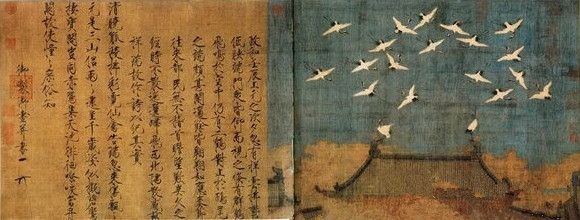 政和壬辰上元之次夕忽有祥雲拂鬱
低映端門衆皆仰而視之倏有群鶴
飛鳴於空中仍有二鶴對止於鴟尾
之端頗甚閒適餘皆翱翔如應奏節
往來都民無不稽首瞻望歎異久之
經時不散迤邐歸飛西北隅散感茲
祥瑞故作詩以紀其實
清曉觚稜拂彩霓仙禽告瑞忽來儀飄〻
元是三山侶兩〻還呈千歲姿似擬碧鸞
棲寶閣豈同赤雁集天池徘徊嘹唳當丹
闕故使憧〻庶俗知
御製御畫并書